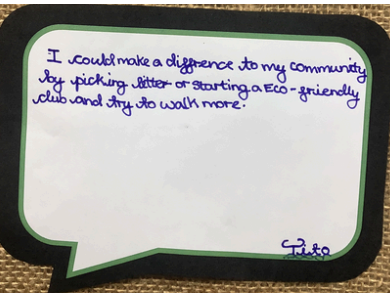 I could make a diffrence to my community
by picking litter or starting a Eco-friendly
club and try to walk more.